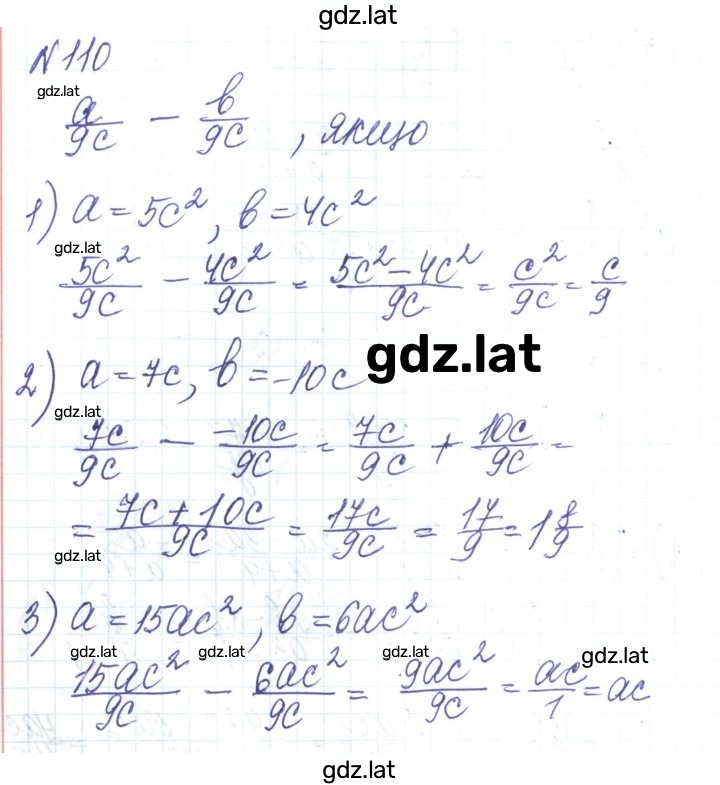 gdz.lat
№110
gdz.lat
a/9c - b/9c , якщо
1) a = 5c², b = 4c²
gdz.lat
5c²/9c - 4c²/9c = 5c² - 4c²/9c = c²/9c = c/9
gdz.lat
2) a = 7c, b = -10c
gdz.lat
7c/9c - -10c/9c = 7c/9c + 10c/9c =
= 7c + 10c/9c = 17c/9c = 17/9 = 1 8/9
gdz.lat
3) a = 15ac², b = 6ac²
gdz.lat gdz.lat gdz.lat gdz.lat
15ac²/9c - 6ac²/9c = 9ac²/9c = ac/1 = ac
gdz.lat